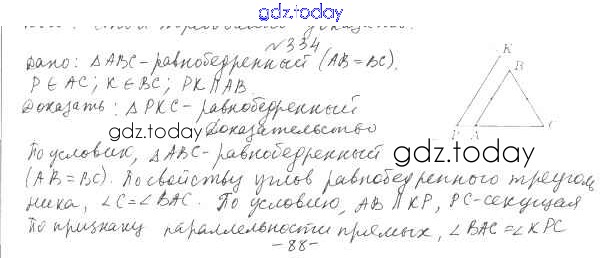 gdz.today
№334
Дано: △ABC-равнобедренный (AB=BC).
P∈AC; K∈BC; PK∥AB
Доказать: △PKC-равнобедренный
gdz.today Доказательство
По условию, △ABC-равнобедренный
gdz.today
(AB=BC). По свойству углов равнобедренного треуголь
ника, ∠C=∠BAC. По условию, AB∥KP, PC-секущая
По признаку параллельности прямых, ∠BAC=∠KPC
-88-
K
B
P A C